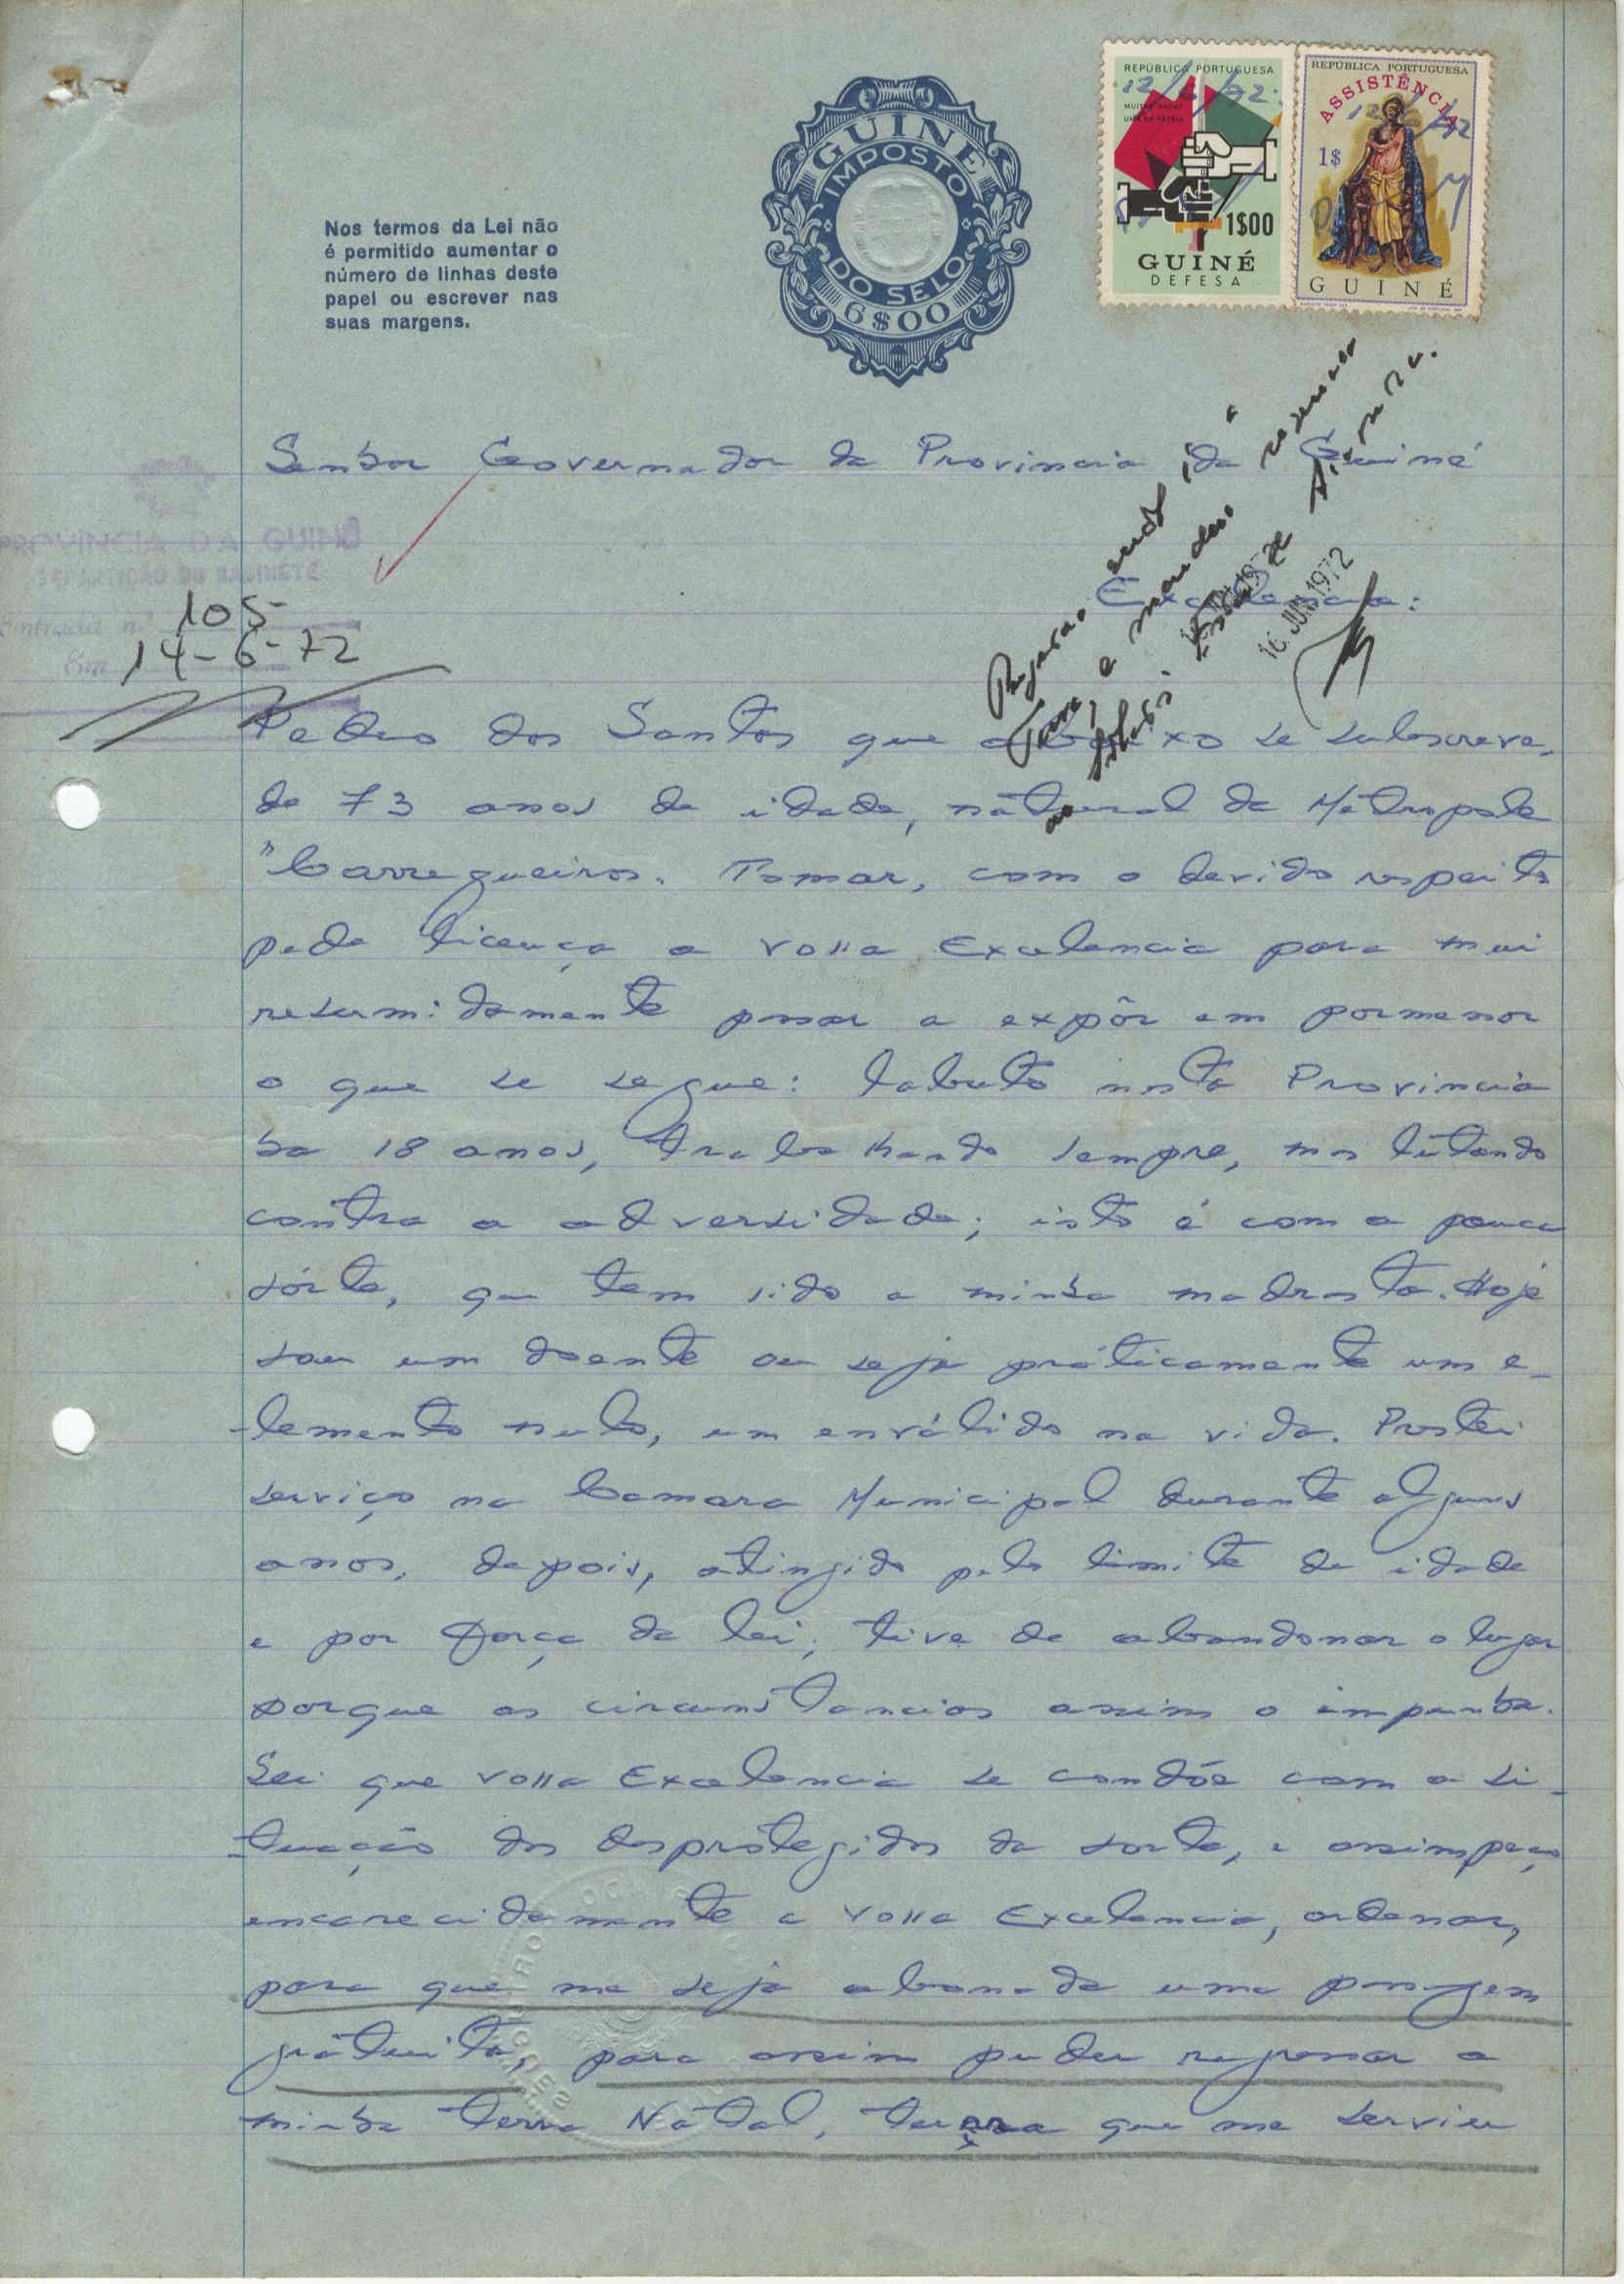 REPÚBLICA PORTUGUESA
12/6/72
MUITAS RAÇAS
UMA SÓ PÁTRIA
1$00
GUINÉ
DEFESA
REPÚBLICA PORTUGUESA
ASSISTÊNCIA
12/6/72
1$
GUINÉ
GUINÉ
IMPOSTO
DO SELO
6$00
Nos termos da Lei não
é permitido aumentar o
número de linhas deste
papel ou escrever nas
suas margens.
Senhor Governador da Provincia da Guiné
PROVINCIA DA GUINÉ
REPARTIÇÃO DO GABINETE
Entrada n.º 105
Em 14-6-72
16 JUN. 1972
Excelencia:
Pedro dos Santos que abaixo se subscreve,
de 73 anos de idade, nátural da Métropole
"Carregueiros. Tomar, com o devido respeito
pede licença a Vossa Excelencia para mui
resumidamente passar a expôr em pormenor
o que se segue: labuto nesta Provincia
ha 18 anos, trabalhando sempre, mas lutando
contra a adversidade; isto é com a pouca
sórte, que tem sido a minha madrasta. Hoje
sou um doente ou seja práticamente um e-
-lemento nulo, um enválido na vida. Prestei
serviço na Camara Municipal durante alguns
anos, depois, atingido pelo limite de idade
e por força da lei, tive de abandonar o lugar
porque as circunstancias assim o impunha.
Sei que Vossa Excelencia se condóe com a si-
-tuação dos desprótegidos da sorte, e assim peço
encarecidamente a Vossa Excelencia, ordenar,
para que me seja abonada uma passagem
grátuita, para assim puder regressar a
minha terra Nátal, terra que me serviu